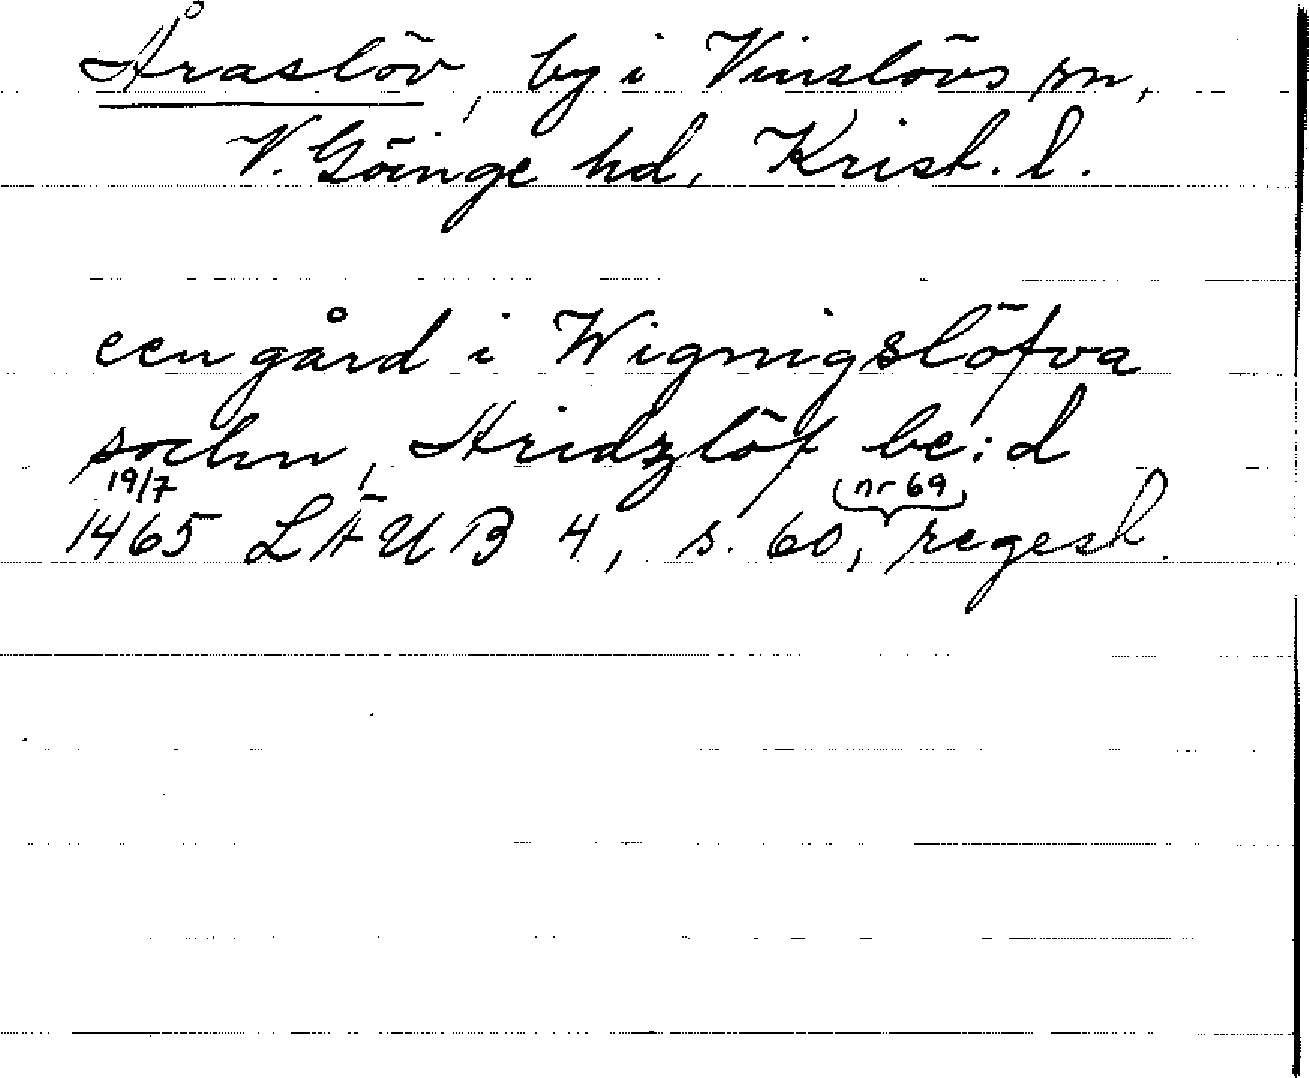 Åraslöv, by i Vinslövs sn,
V. Göinge hd, Krist. l.
een gård i Wignigslöfva
sochn, Aridzlöf be:d
19/7
1465 LÄUB 4, s. 60, (nr 69) regest.